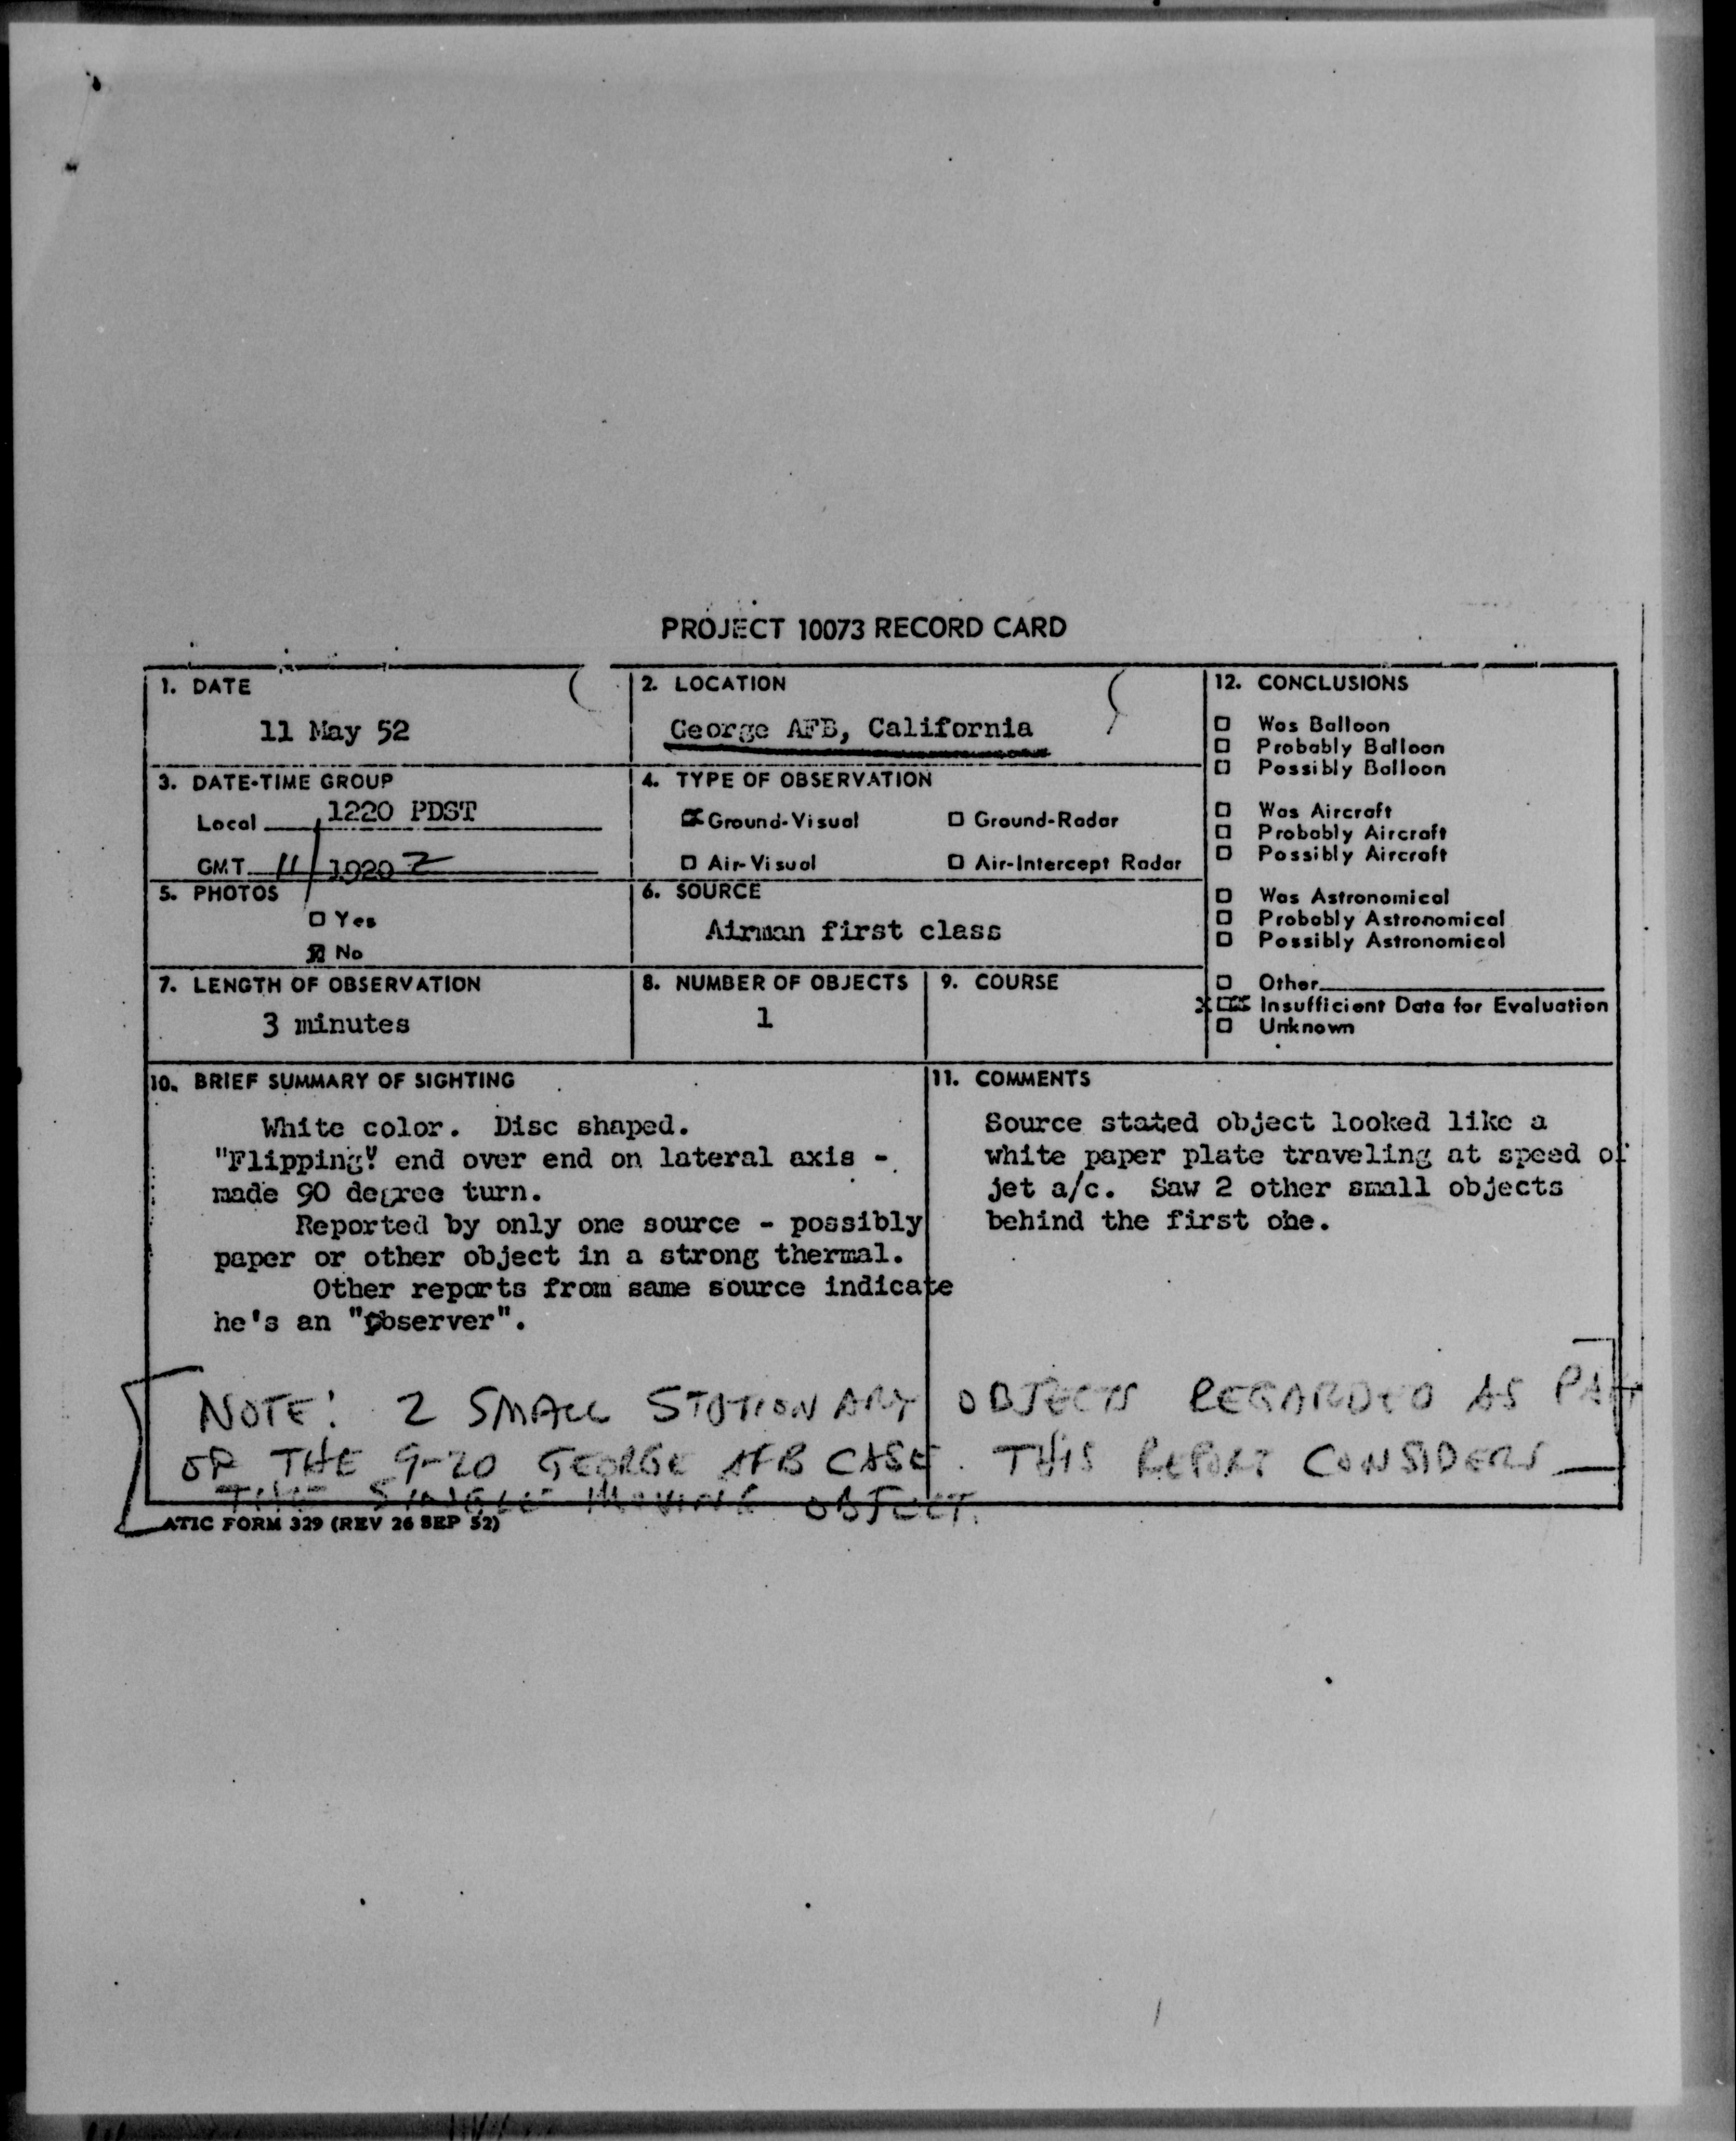 PROJECT 10073 RECORD CARD
1. DATE
11 May 52
2. LOCATION
George AFB, California
3. DATE-TIME GROUP
Local 1220 PDST
GMT 11/1920 Z
4. TYPE OF OBSERVATION
Ground-Visual Ground-Radar
Air-Visual Air-Intercept Radar
5. PHOTOS
Yes
No
6. SOURCE
Airman first class
7. LENGTH OF OBSERVATION
3 minutes
8. NUMBER OF OBJECTS
1
9. COURSE
12. CONCLUSIONS
Was Balloon
Probably Balloon
Possibly Balloon
Was Aircraft
Probably Aircraft
Possibly Aircraft
Was Astronomical
Probably Astronomical
Possibly Astronomical
Other
Insufficient Data for Evaluation
Unknown
10. BRIEF SUMMARY OF SIGHTING
White color. Disc shaped.
"Flipping" end over end on lateral axis -
made 90 degree turn.
Reported by only one source - possibly
paper or other object in a strong thermal.
Other reports from same source indicate
he's an "observer".
11. COMMENTS
Source stated object looked like a
white paper plate traveling at speed of
jet a/c. Saw 2 other small objects
behind the first one.
NOTE: 2 SMALL STATIONARY OBJECTS REGARDED AS PART
OF THE 9-20 GEORGE AFB CASE. THIS REPORT CONSIDERS
THE SINGLE MOVING OBJECT.
ATIC FORM 329 (REV 26 SEP 52)